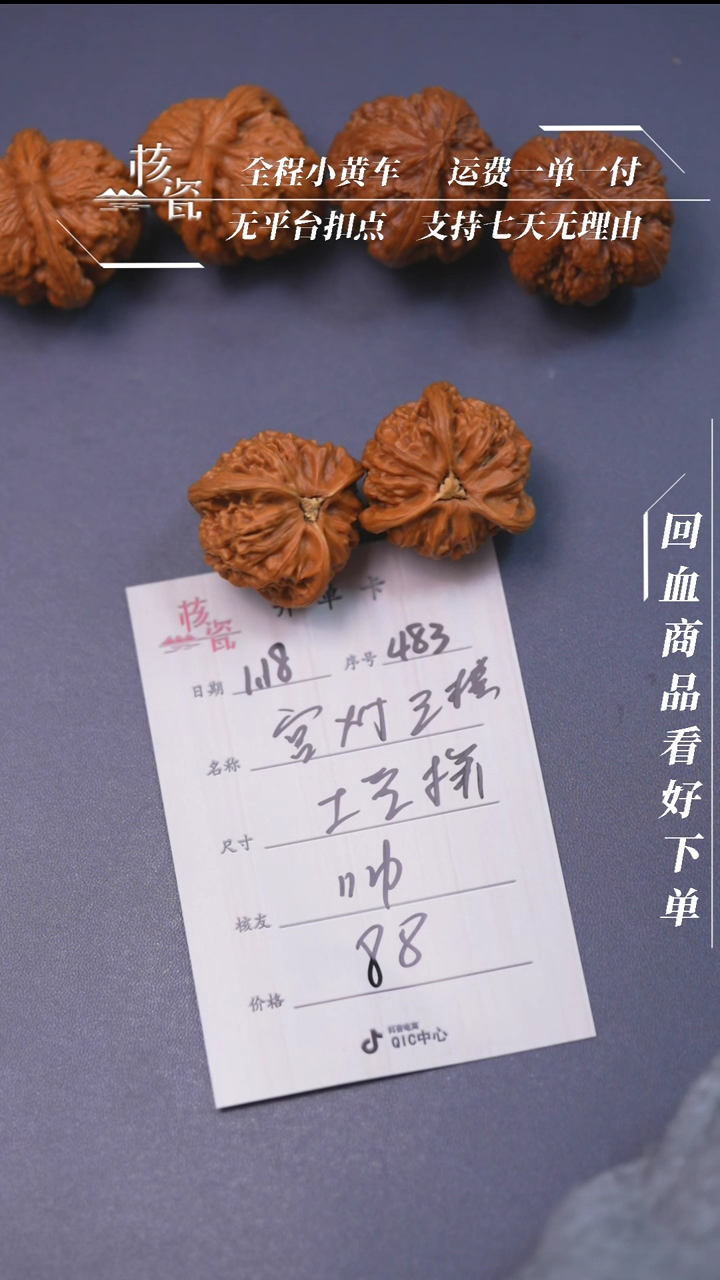 核瓷
全程小黄车 运费一单一付
无平台扣点 支持七天无理由
回血商品看好下单
核瓷
开单卡
日期 1.18 序号 483
名称
尺寸
核友 帅
价格 88
抖音电商
QIC中心